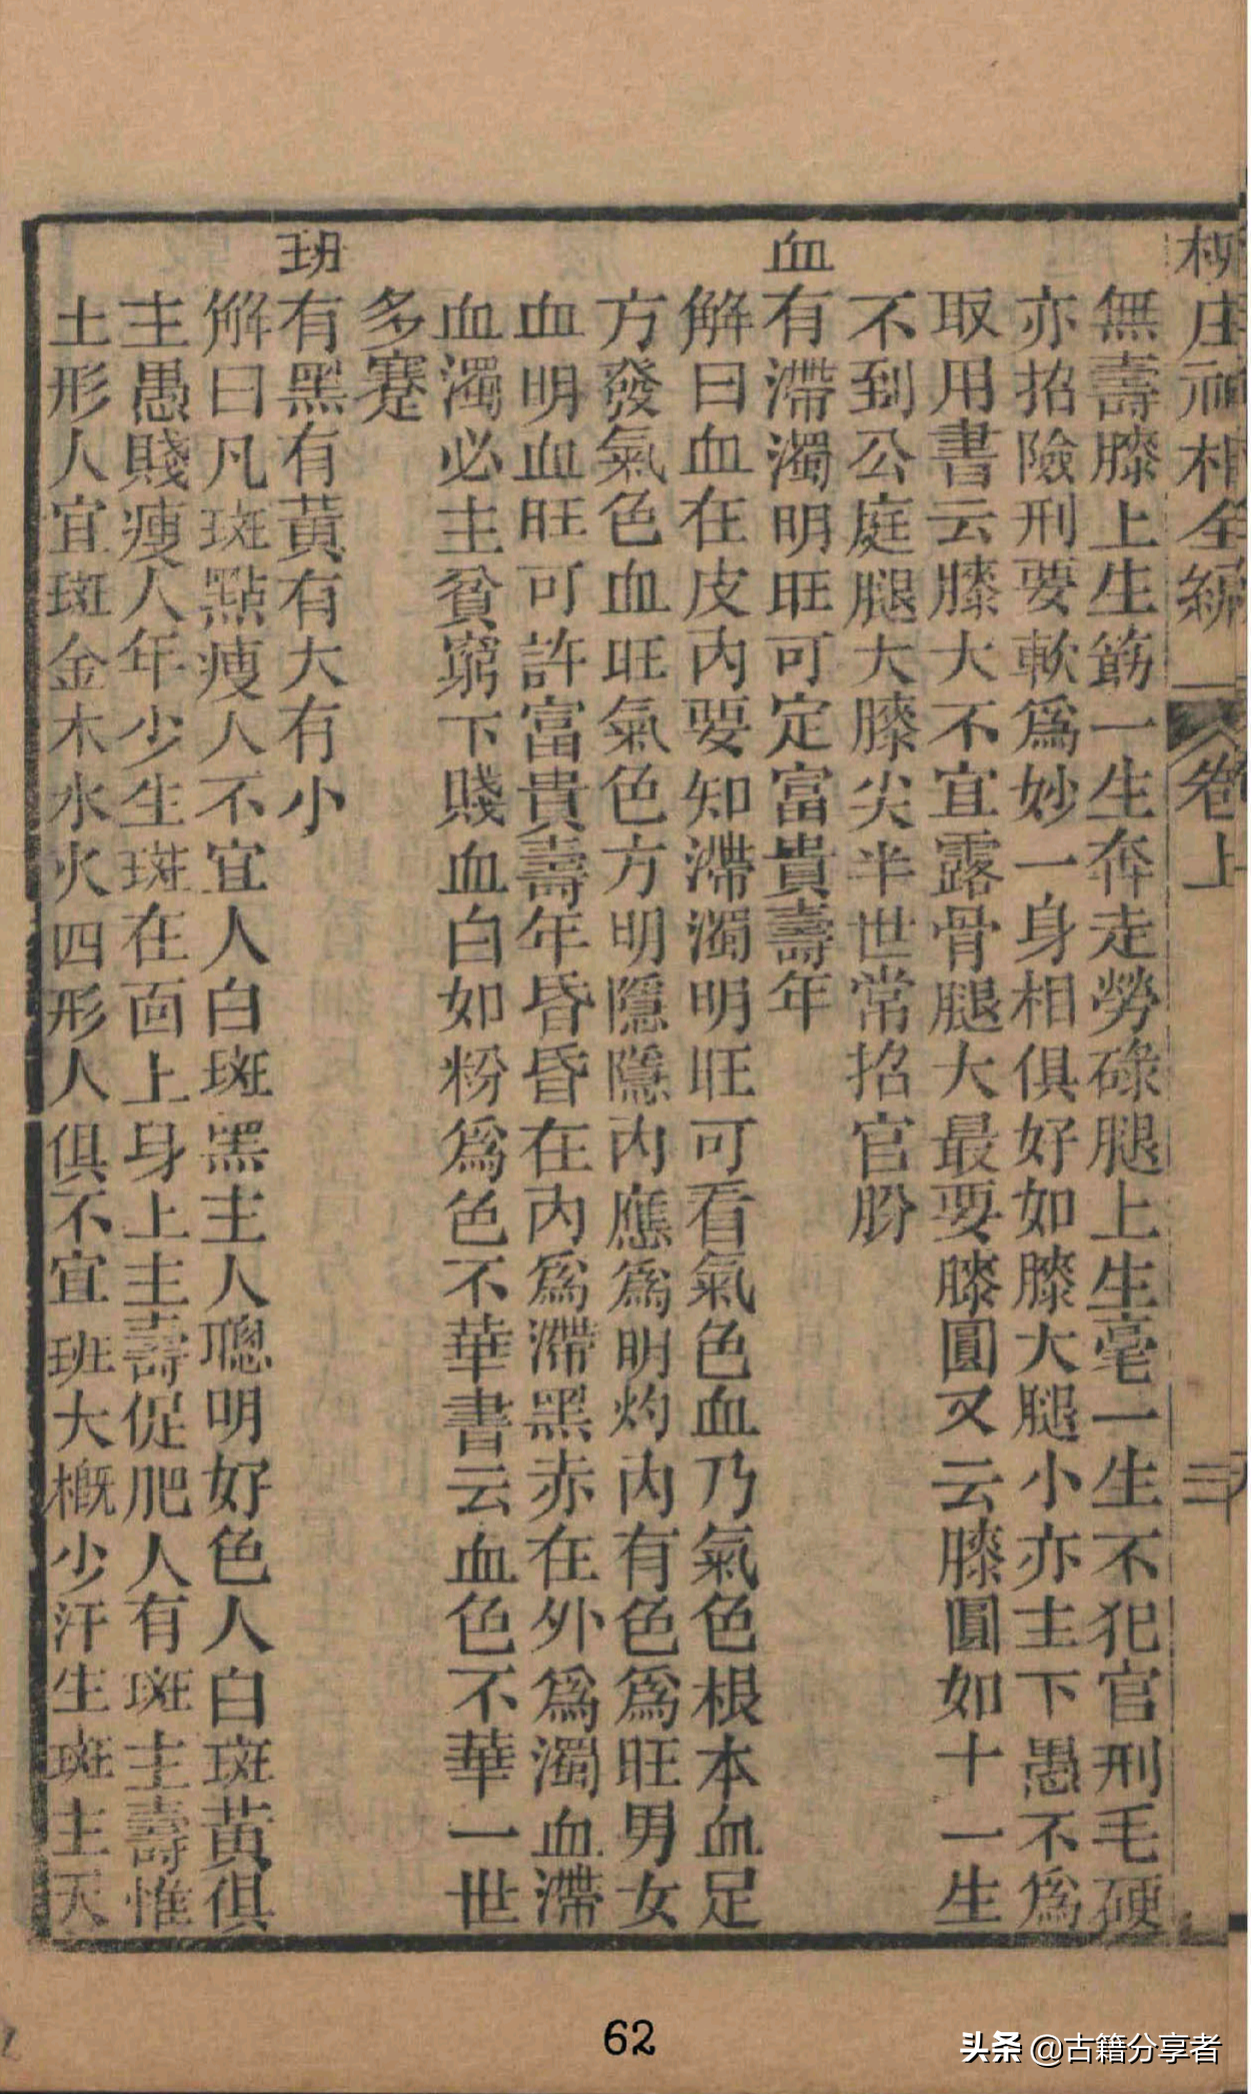 柳庄神相全編 卷上 三
無壽膝上生筋一生奔走勞碌腿上生毫一生不犯官刑毛硬
亦招險刑要軟爲妙一身相俱好如膝大腿小亦主下愚不爲
取用書云膝大不宜露骨腿大最要膝圓又云膝圓如十一生
不到公庭腿大膝尖半世常招官肹
血
有滯濁明旺可定富貴壽年
解曰血在皮内要知滯濁明旺可看氣色血乃氣色根本血足
方發氣色血旺氣色方明隱隱内應爲明灼内有色爲旺男女
血明血旺可許富貴壽年昏昏在内爲滯黑赤在外爲濁血滯
血濁必主貧窮下賤血白如粉爲色不華書云血色不華一世
多蹇
班
有黑有黃有大有小
解曰凡斑點瘦人不宜人白斑黑主人聰明好色人白斑黃俱
主愚賤瘦人年少生斑在面上身上主壽促肥人有斑主壽惟
土形人宜斑金木水火四形人俱不宜班大概少汗生斑主夭
62
头条 @古籍分享者